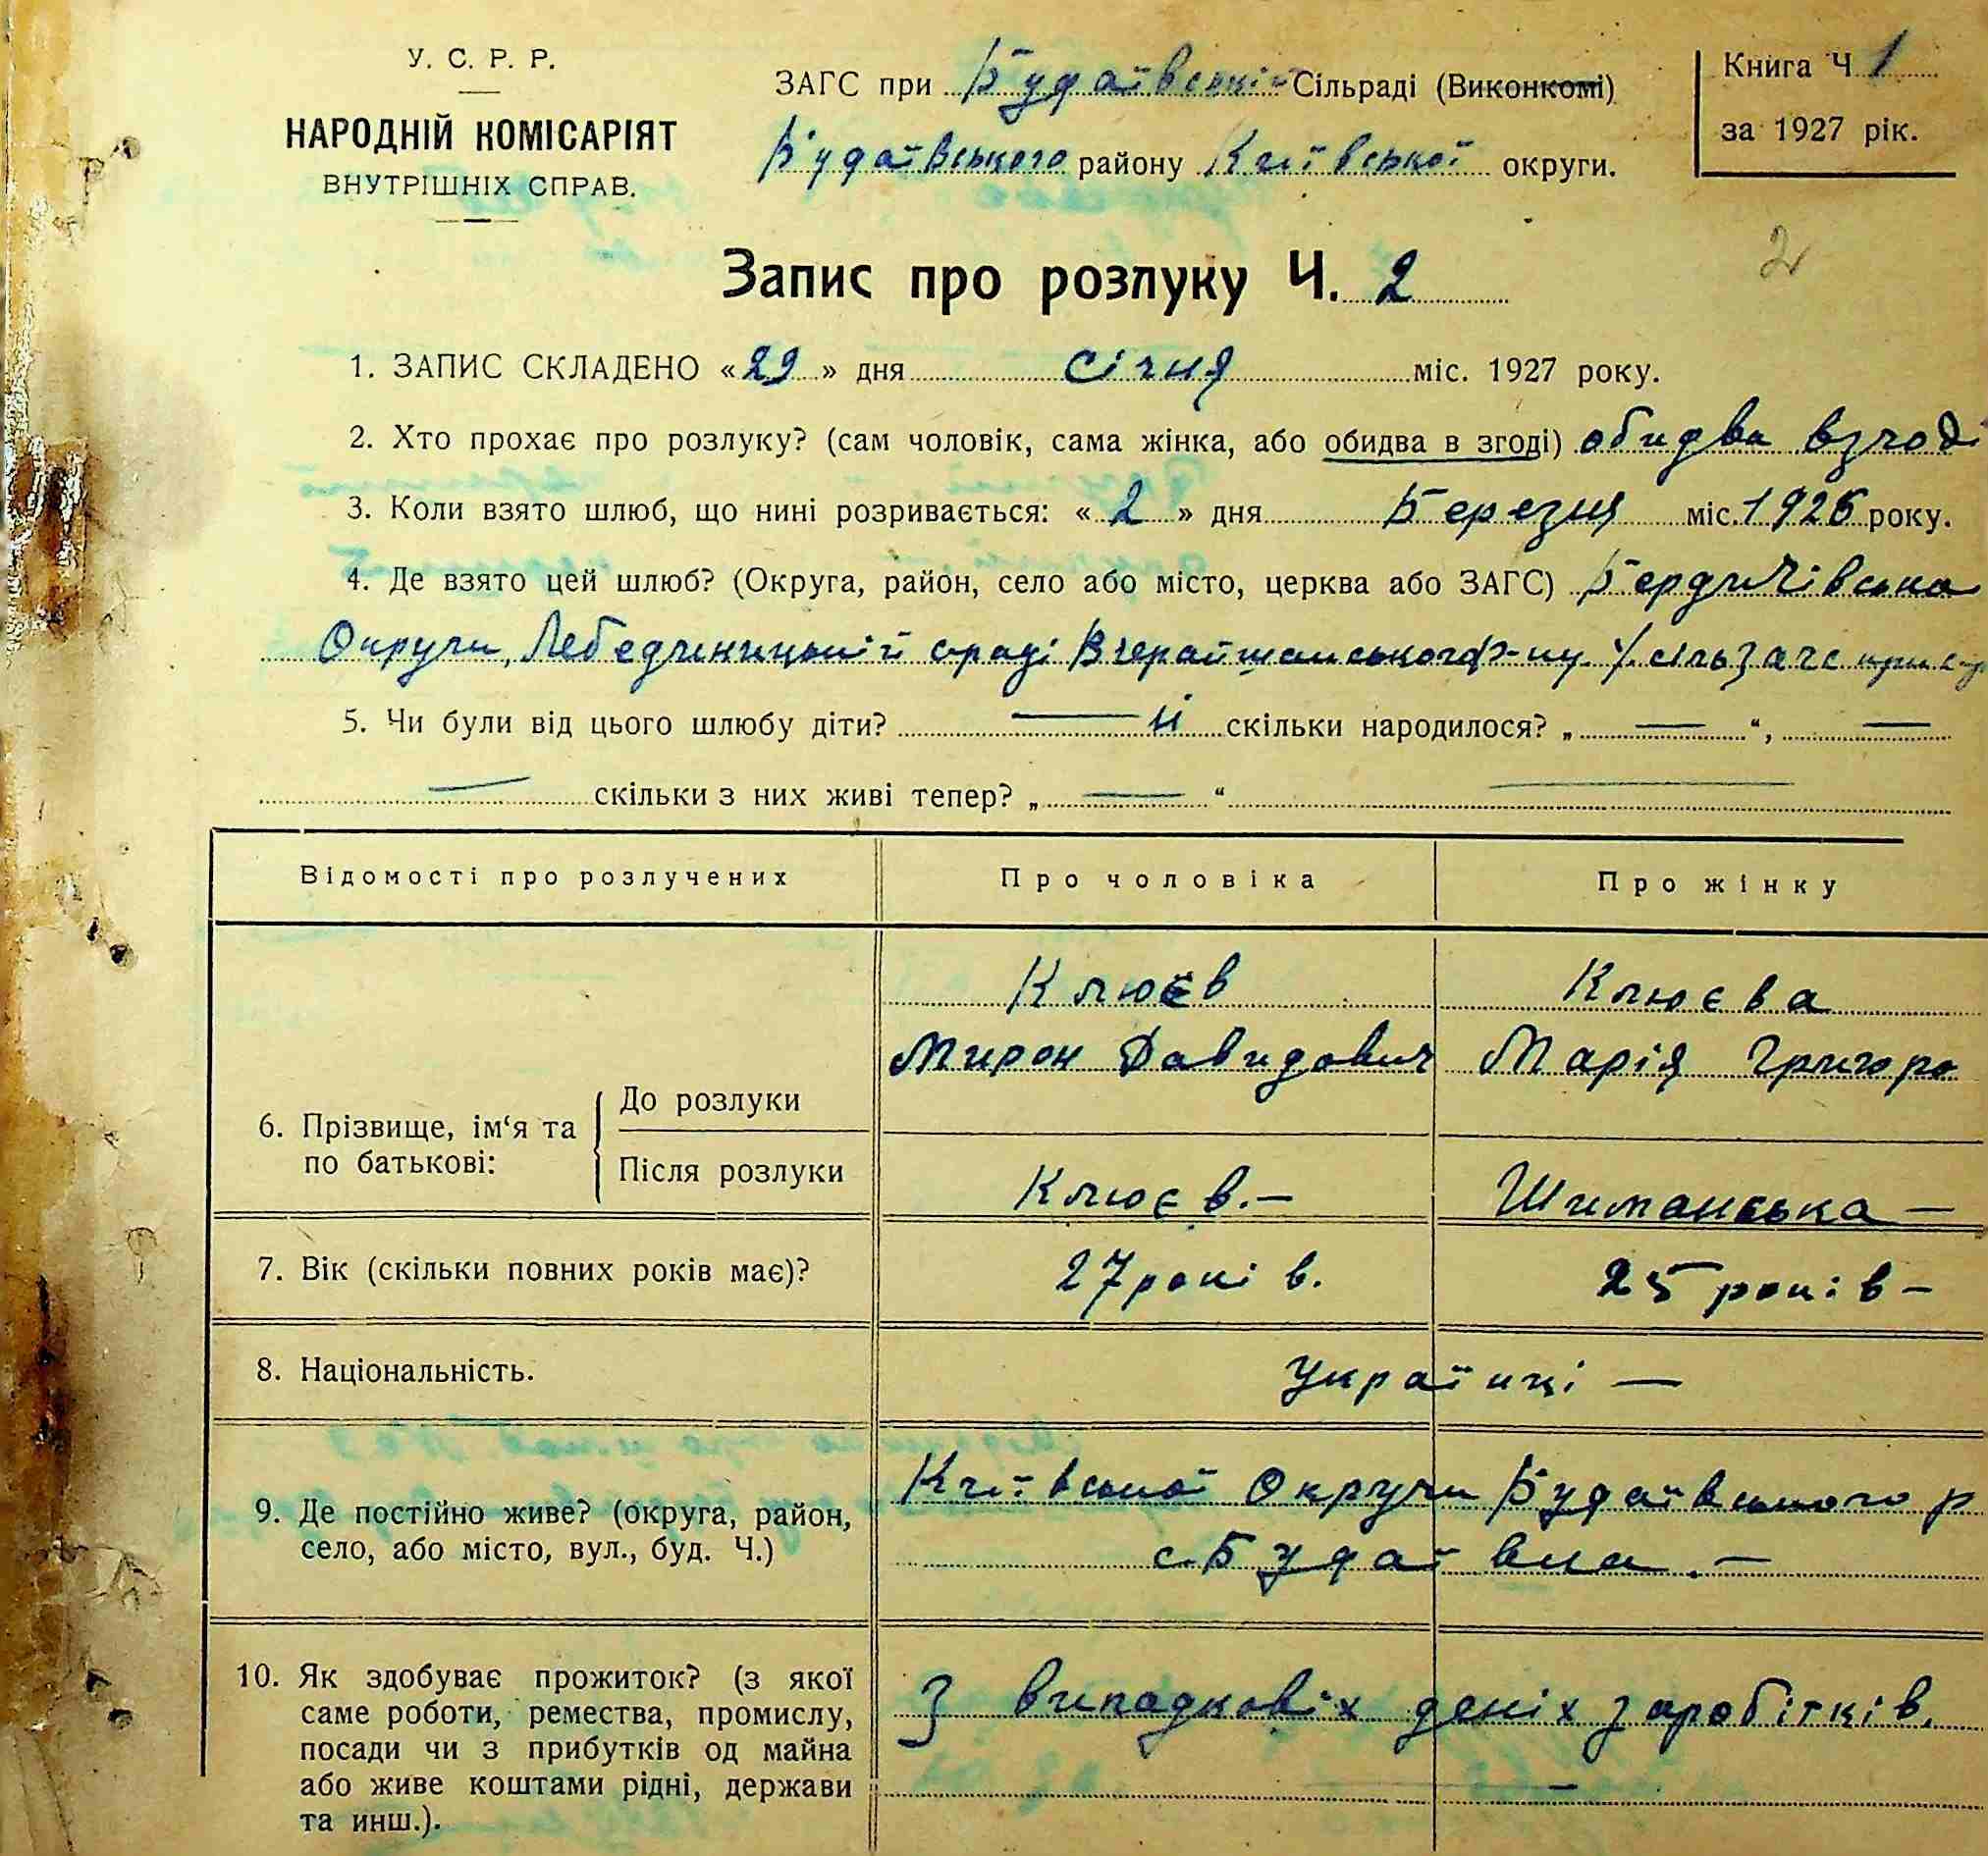 У. С. Р. Р.
НАРОДНІЙ КОМІСАРІЯТ
ВНУТРІШНІХ СПРАВ.
ЗАГС при Будаївській Сільраді (Виконкомі)
Будаївського району Київської округи.
Книга Ч 1
за 1927 рік.
2
Запис про розлуку Ч. 2
1. ЗАПИС СКЛАДЕНО «29» дня січня міс. 1927 року.
2. Хто прохає про розлуку? (сам чоловік, сама жінка, або обидва в згоді) обидва взгоді
3. Коли взято шлюб, що нині розривається: «2» дня Березня міс. 1926 року.
4. Де взято цей шлюб? (Округа, район, село або місто, церква або ЗАГС) Бердичівська
Округи, Лебединицькій сраді Вчерайшанського р-ну. сільзагс при
5. Чи були від цього шлюбу діти? — й скільки народилося? „ — “, —
— скільки з них живі тепер? „ — “ —
Відомості про розлучених
Про чоловіка
Про жінку
Клюєв
Клюєва
Мирон Давидович
Марія Григоро
6. Прізвище, ім‘я та по батькові:
До розлуки
Після розлуки
Клюєв.—
Шиманська —
7. Вік (скільки повних років має)?
27 років.
25 років —
8. Національність.
Українці —
9. Де постійно живе? (округа, район,
село, або місто, вул., буд. Ч.)
Київської Округи Будаївського р
с. Будаївка. —
10. Як здобуває прожиток? (з якої
саме роботи, ремества, промислу,
посади чи з прибутків од майна
або живе коштами рідні, держави
та инш.).
З випадковіх деніх заробітків.
—